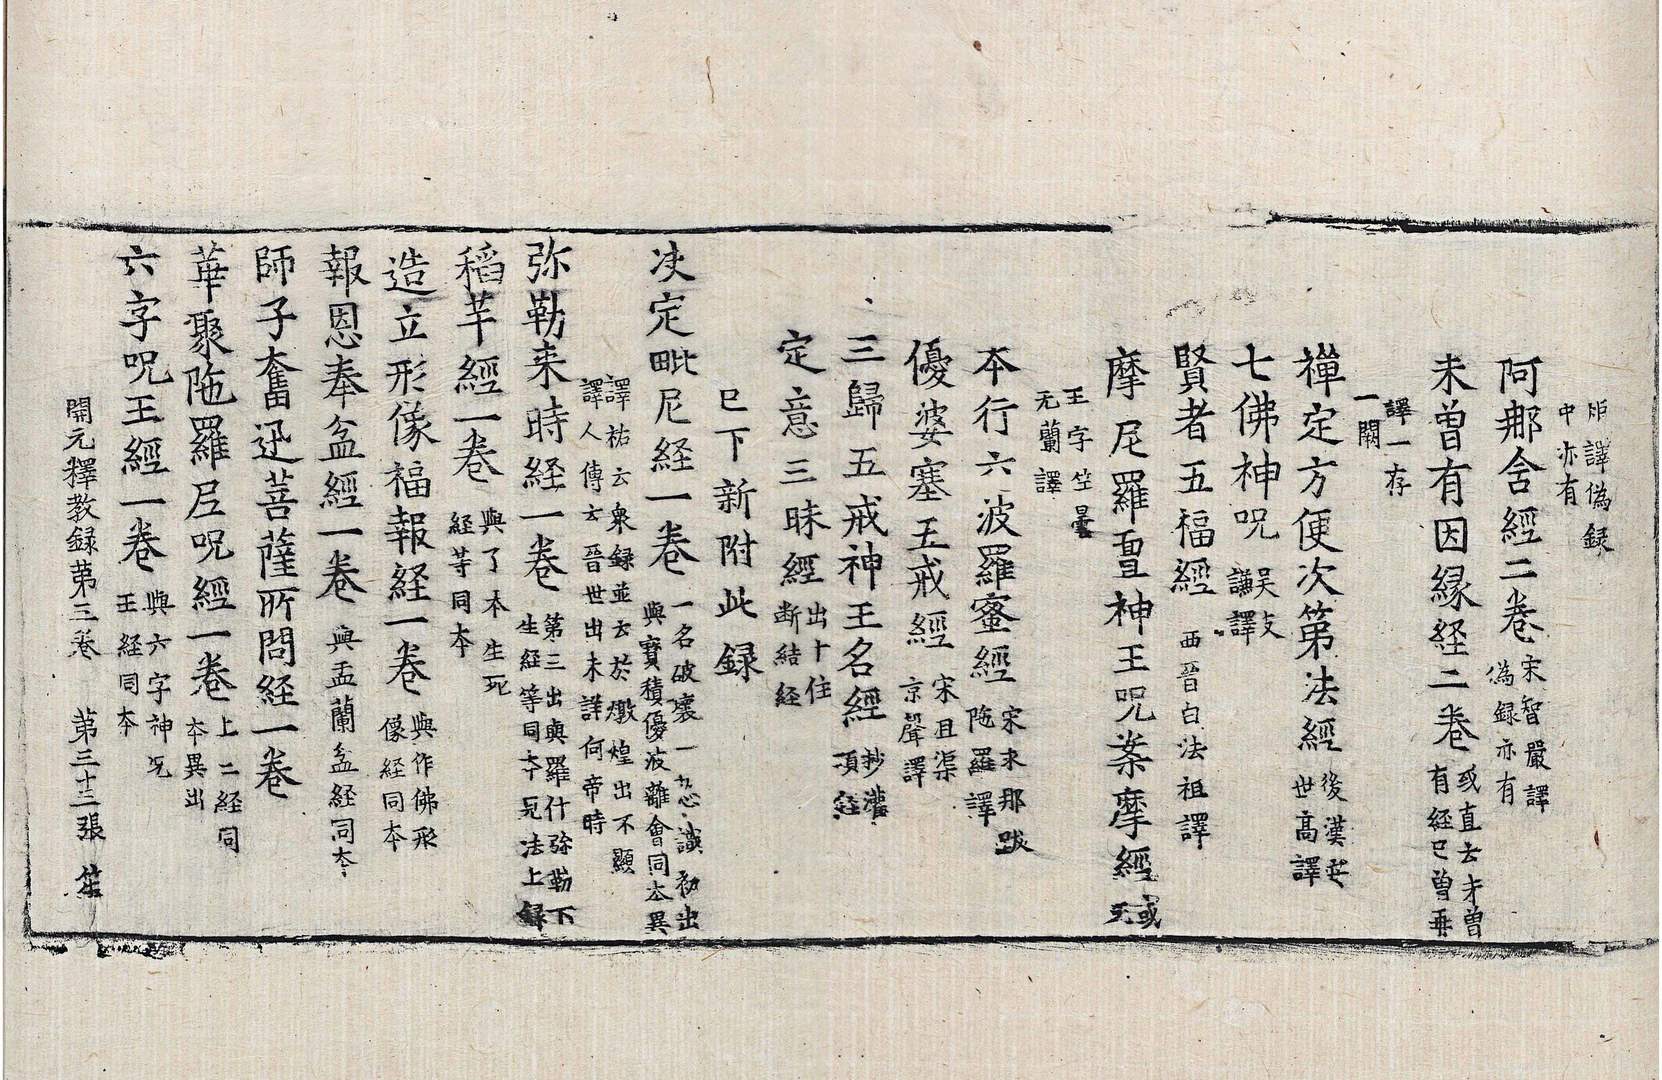 炬譯偽録
中亦有
阿𨚗舍經二卷宋智嚴譯
偽録亦有
未曽有因縁経二卷或直云未曽
有経已曽再
譯一存
一闕
禪定方便次第法經後漢安
世高譯
七佛神呪吳支
謙譯
賢者五福經西晉白法祖譯
摩尼羅亶神王呪案摩經或
无
王字竺曇
无蘭譯
本行六波羅蜜經宋求那跋
陁羅譯
優婆塞五戒經宋且渠
京聲譯
三歸五戒神王名經抄灌
頂経
定意三昧經出十住
断結経
已下新附此録
决定毗尼経一卷一名破壞一切心識初出
與寶積優波離會同本異
譯祐云衆録並云於燉煌出不顯
譯人傳云晉世出未詳何帝時
弥勒来時経一卷第三出與羅什弥勒下
生経等同本見法上録
稻芉經一卷與了本生死
経等同本
造立形像福報経一卷與作佛形
像経同本
報恩奉盆經一卷與盂蘭盆経同本
師子奮迅菩薩所問経一卷
華聚陁羅尼呪經一卷上二経同
本異出
六字呪王經一卷與六字神呪
王経同本
開元釋教録第三卷 第三十三張 笙